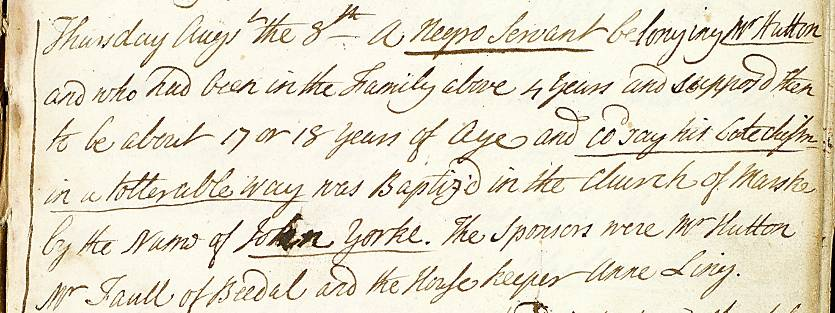 Thursday Augst the 8th A Negro Servant belonging Mr Hutton
and who had been in the Family above 4 Years and suppos'd then
to be about 17 or 18 Years of Age and co'd say his Catechism
in a tollerable way was Baptiz'd in the Church of Marske
by the Name of John Yorke. The Sponsors were Mr Hutton
Mr Faull of Beedal and the House keeper Anne Ling.